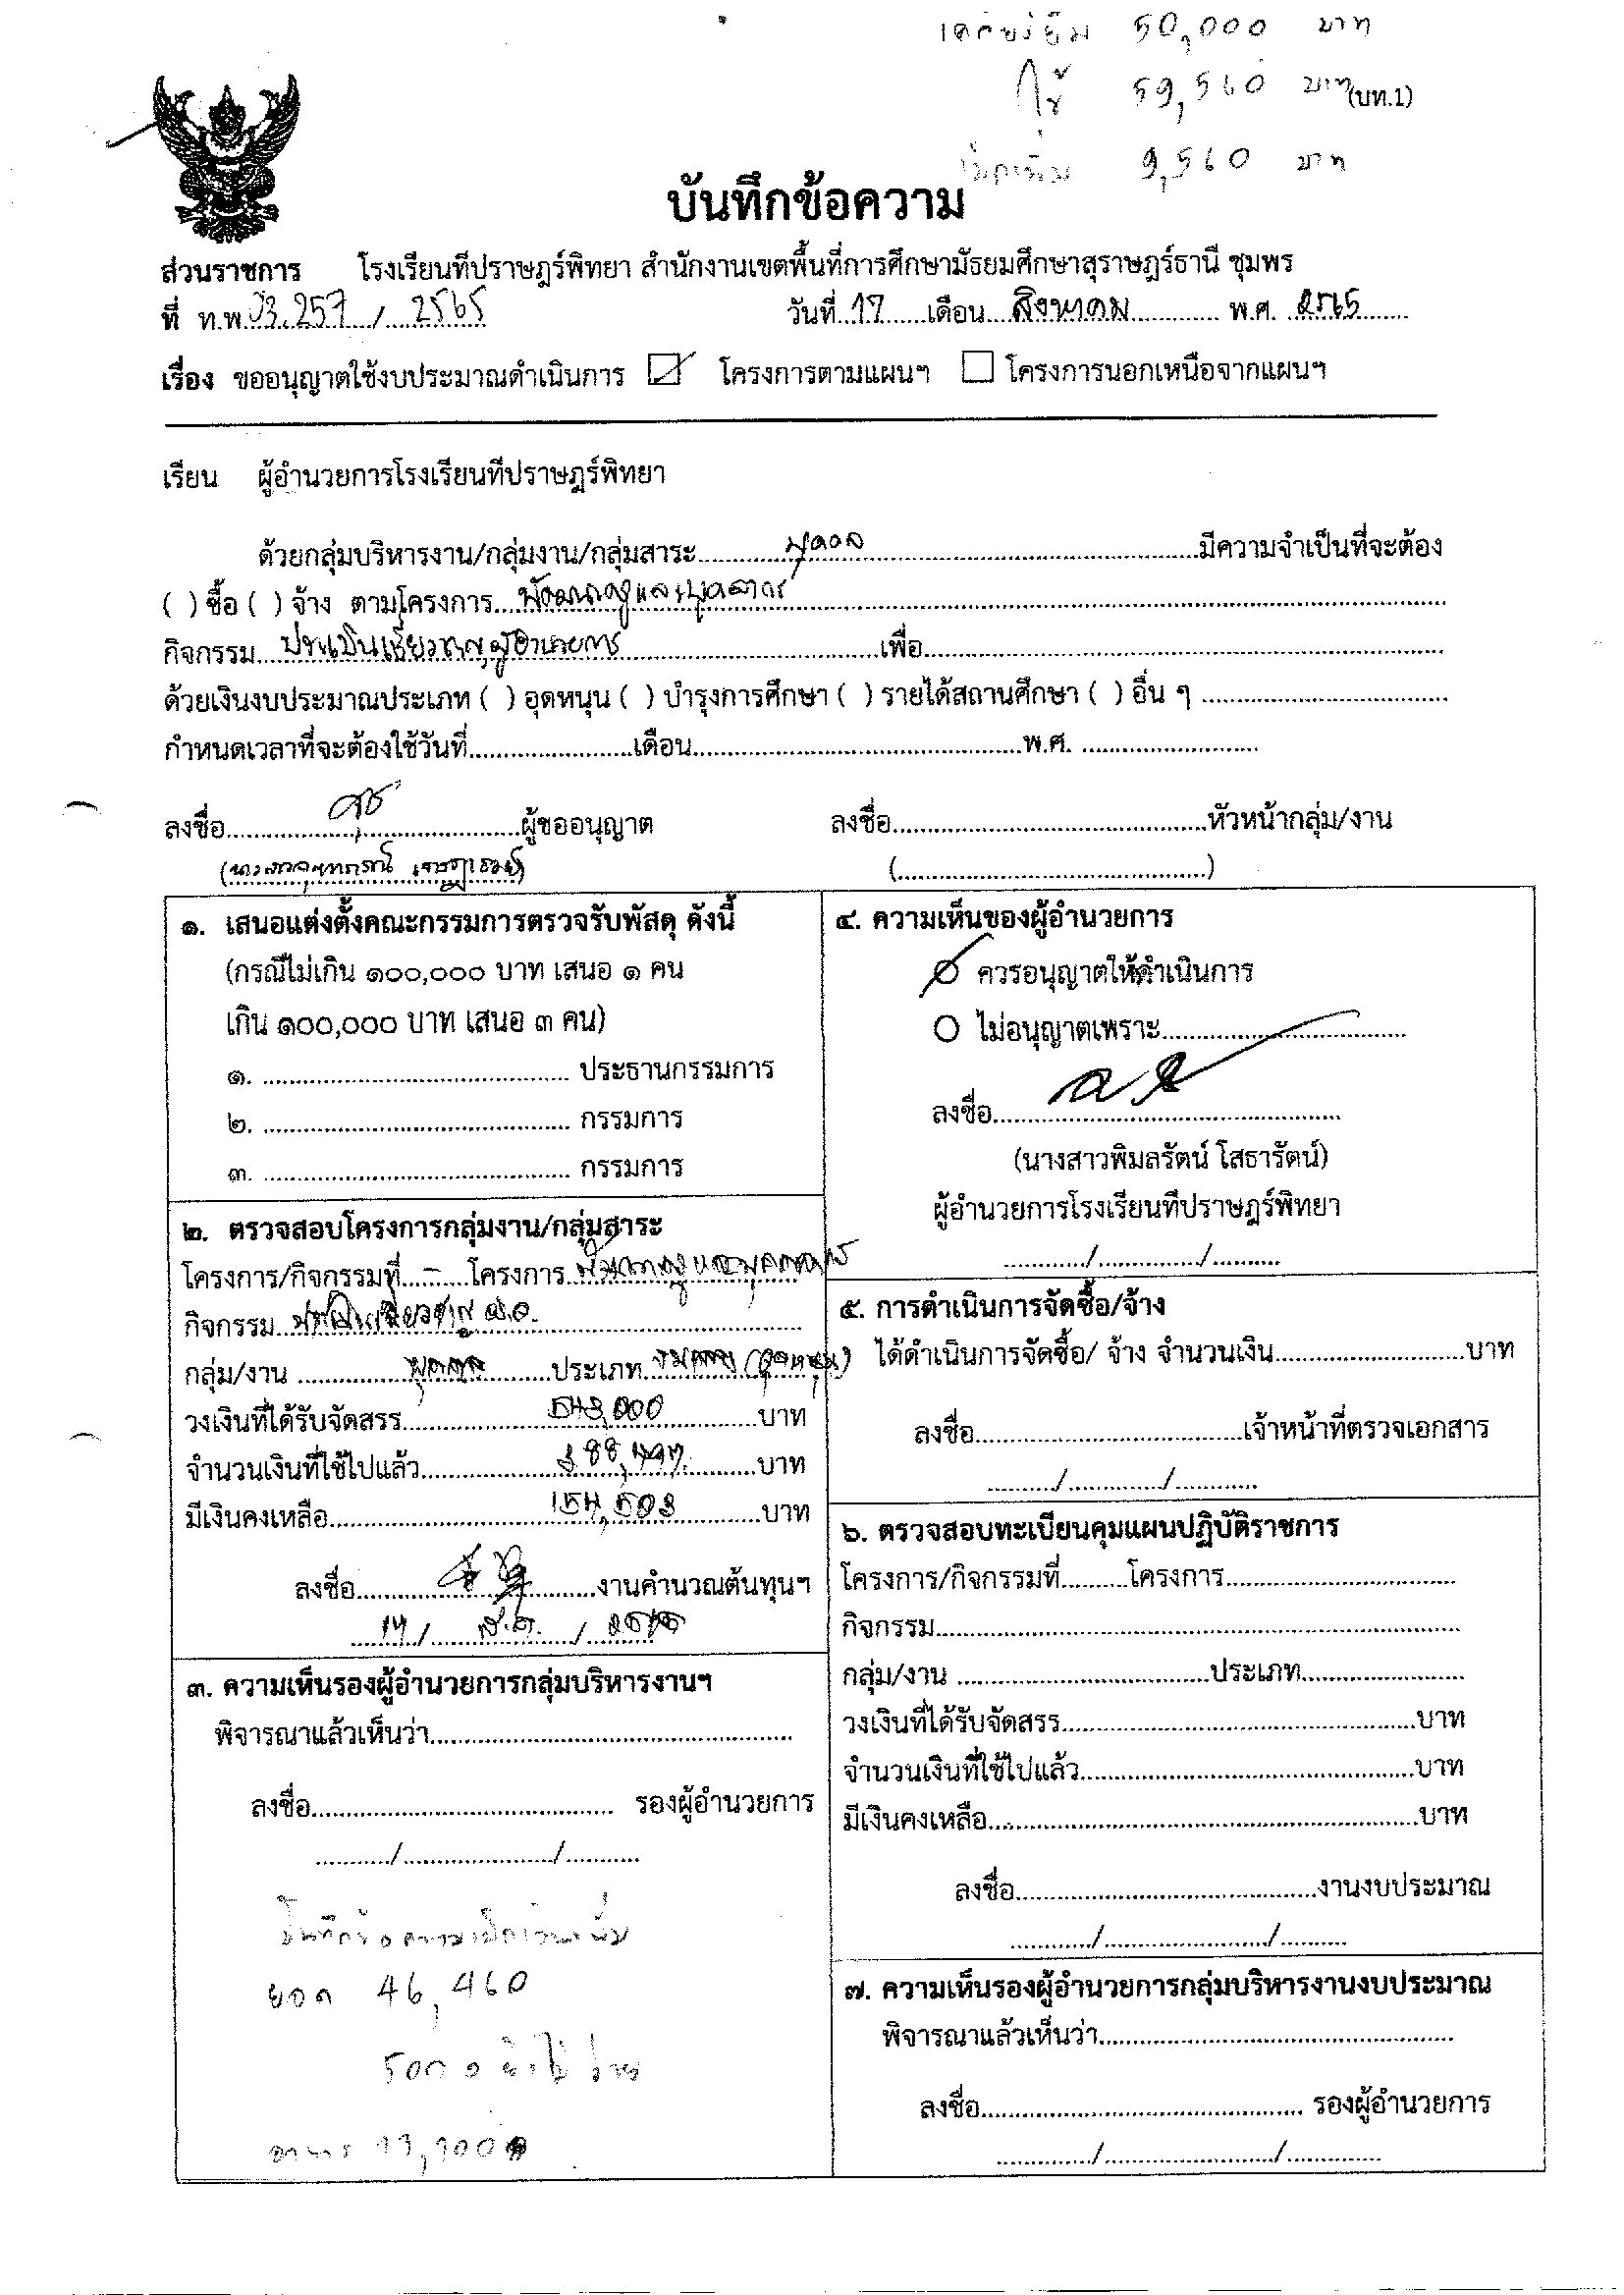 50,000 บาท
ใช้ 59,560 บาท
(บท.1)
9,560 บาท
บันทึกข้อความ
ส่วนราชการ โรงเรียนทีปราษฎร์พิทยา สำนักงานเขตพื้นที่การศึกษามัธยมศึกษาสุราษฎร์ธานี ชุมพร
ที่ ท.พ. 03.257 / 2565 วันที่ 17 เดือน สิงหาคม พ.ศ. 2565
เรื่อง ขออนุญาตใช้งบประมาณดำเนินการ ☑ โครงการตามแผนฯ ☐ โครงการนอกเหนือจากแผนฯ
เรียน ผู้อำนวยการโรงเรียนทีปราษฎร์พิทยา
ด้วยกลุ่มบริหารงาน/กลุ่มงาน/กลุ่มสาระ บุคคล มีความจำเป็นที่จะต้อง
( ) ซื้อ ( ) จ้าง ตามโครงการ พัฒนาครูและบุคลากร
กิจกรรม ประเมินเชี่ยวชาญผู้อำนวยการ เพื่อ
ด้วยเงินงบประมาณประเภท ( ) อุดหนุน ( ) บำรุงการศึกษา ( ) รายได้สถานศึกษา ( ) อื่น ๆ
กำหนดเวลาที่จะต้องใช้วันที่ เดือน พ.ศ.
ลงชื่อ ผู้ขออนุญาต ลงชื่อ หัวหน้ากลุ่ม/งาน
๑. เสนอแต่งตั้งคณะกรรมการตรวจรับพัสดุ ดังนี้
(กรณีไม่เกิน ๑๐๐,๐๐๐ บาท เสนอ ๑ คน
เกิน ๑๐๐,๐๐๐ บาท เสนอ ๓ คน)
๑. ประธานกรรมการ
๒. กรรมการ
๓. กรรมการ
๒. ตรวจสอบโครงการกลุ่มงาน/กลุ่มสาระ
โครงการ/กิจกรรมที่ - โครงการ พัฒนาครูและบุคลากร
กิจกรรม ประเมินเชี่ยวชาญ ผ.อ.
กลุ่ม/งาน บุคคล ประเภท (อุดหนุน)
วงเงินที่ได้รับจัดสรร 543,000 บาท
จำนวนเงินที่ใช้ไปแล้ว 388,497 บาท
มีเงินคงเหลือ 154,503 บาท
ลงชื่อ งานคำนวณต้นทุนฯ
17 / ส.ค. / 2565
๓. ความเห็นรองผู้อำนวยการกลุ่มบริหารงานฯ
พิจารณาแล้วเห็นว่า
ลงชื่อ รองผู้อำนวยการ
บันทึกข้อความเบิกเงินเพิ่ม
ยอด 46,460
อาหาร 13,100
๔. ความเห็นของผู้อำนวยการ
ควรอนุญาตให้ดำเนินการ
ไม่อนุญาตเพราะ
ลงชื่อ
(นางสาวพิมลรัตน์ โสธารัตน์)
ผู้อำนวยการโรงเรียนทีปราษฎร์พิทยา
๕. การดำเนินการจัดซื้อ/จ้าง
ได้ดำเนินการจัดซื้อ/ จ้าง จำนวนเงิน บาท
ลงชื่อ เจ้าหน้าที่ตรวจเอกสาร
๖. ตรวจสอบทะเบียนคุมแผนปฏิบัติราชการ
โครงการ/กิจกรรมที่ โครงการ
กิจกรรม
กลุ่ม/งาน ประเภท
วงเงินที่ได้รับจัดสรร บาท
จำนวนเงินที่ใช้ไปแล้ว บาท
มีเงินคงเหลือ บาท
ลงชื่อ งานงบประมาณ
๗. ความเห็นรองผู้อำนวยการกลุ่มบริหารงานงบประมาณ
พิจารณาแล้วเห็นว่า
ลงชื่อ รองผู้อำนวยการ